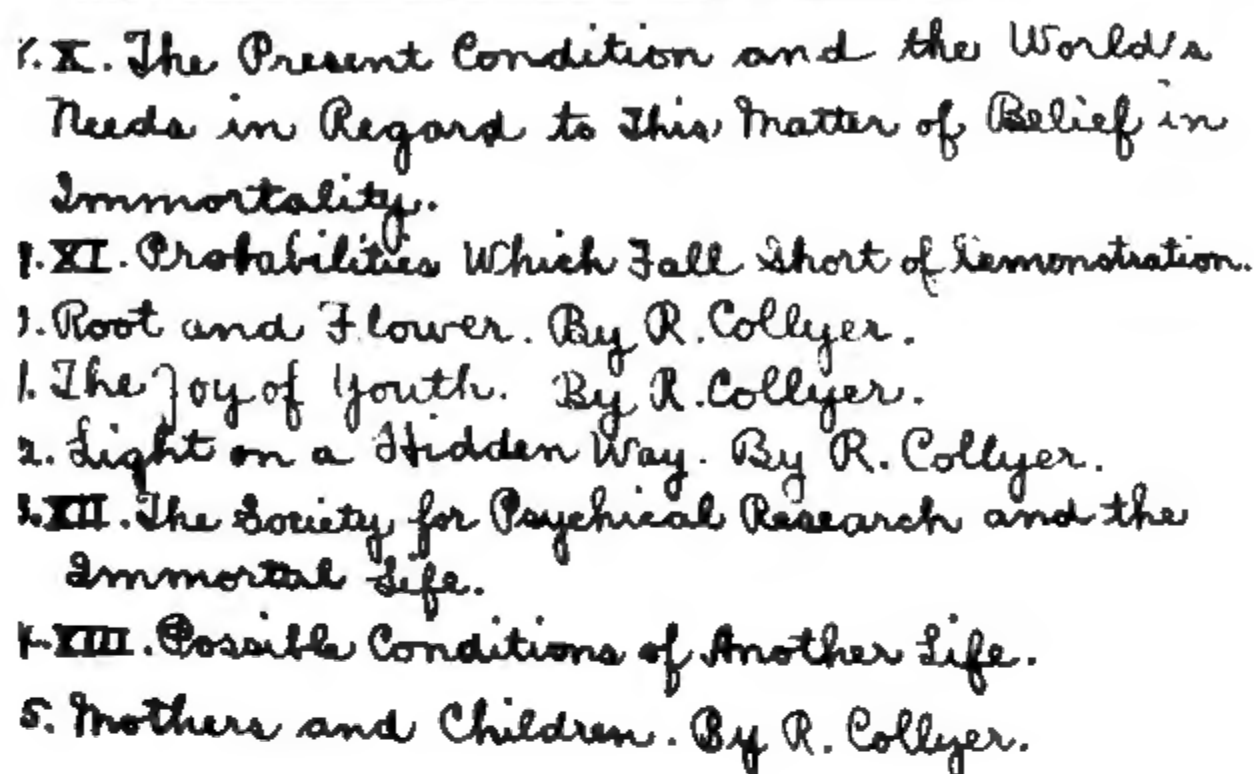 X. The Present Condition and the World's
Needs in Regard to This Matter of Belief in
Immortality.
XI. Probabilities Which Fall Short of Demonstration.
Root and Flower. By R. Collyer.
1. The Joy of Youth. By R. Collyer.
2. Light on a Hidden Way. By R. Collyer.
XII. The Society for Psychical Research and the
Immortal Life.
XIII. Possible Conditions of Another Life.
5. Mothers and Children. By R. Collyer.